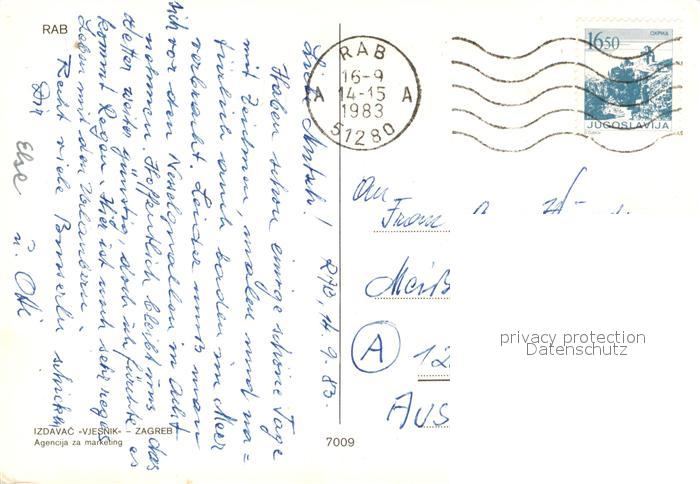 RAB
RAB, 14. 9. 83.
Liebe Mutsch!
Haben schon einige schöne Tage
mit Zeichnen, malen und na=
türlich auch baden im Meer
verbracht. Leider muß man
sich vor den Nesselquallen in Acht
nehmen. Hoffentlich bleibt uns das
Wetter weiter günstig, doch ich fürchte es
kommt Regen. Hier ist noch sehr reges
Leben mit den Urlaubern.
Recht viele Busserln schicken
Dir
Else
u. Otti
IZDAVAČ «VJESNIK» – ZAGREB
Agencija za marketing
7009
RAB
16-9
A 14-15 A
1983
51280
СКРКА
16.50
JUGOSLAVIJA
An
Frau
Meiß
A 12
AUS
privacy protection
Datenschutz